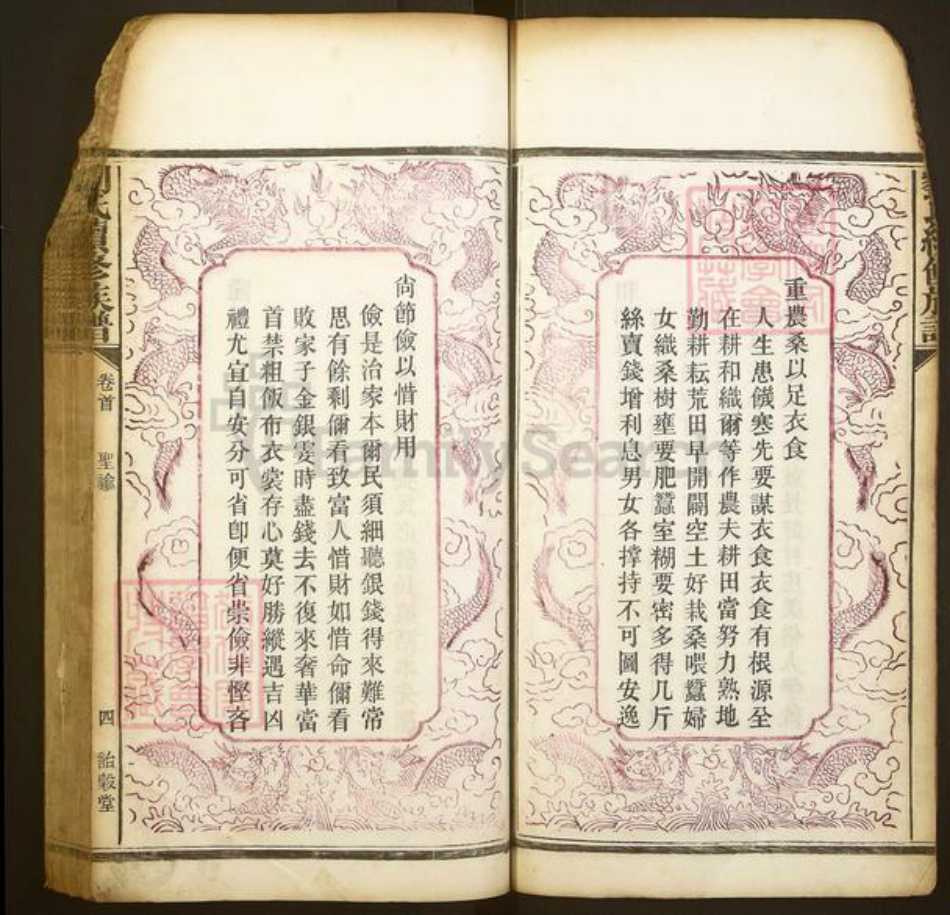 重農桑以足衣食
人生患餓寒先要謀衣食衣食有根源全
在耕和織爾等作農夫耕田當努力熟地
勤耕耘荒田早開闢空土好栽桑喂蠶婦
女織桑樹壅要肥蠶室糊要密多得几斤
絲賣錢增利息男女各撑持不可圖安逸
尙節儉以惜財用
儉是治家本爾民須細聽銀錢得來難常
思有餘剩儞看致富人惜財如惜命儞看
敗家子金銀霎時盡錢去不復來奢華當
首禁粗飯布衣裳存心莫好勝縱遇吉凶
禮尤宜自安分可省卽便省崇儉非慳吝
氏續修族譜
卷首
聖諭
四
詒穀堂
FamilySearch